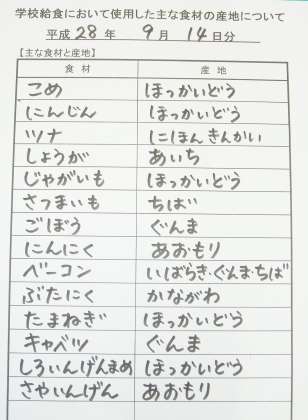 学校給食において使用した主な食材の産地について
平成 28 年 9 月 14 日分
【主な食材と産地】
食材 産地
こめ ほっかいどう
にんじん ほっかいどう
ツナ にほんきんかい
しょうが あいち
じゃがいも ほっかいどう
さつまいも ちば
ごぼう ぐんま
にんにく あおもり
ベーコン いばらき・ぐんま・ちば
ぶたにく かながわ
たまねぎ ほっかいどう
キャベツ ぐんま
しろいんげんまめ ほっかいどう
さやいんげん あおもり